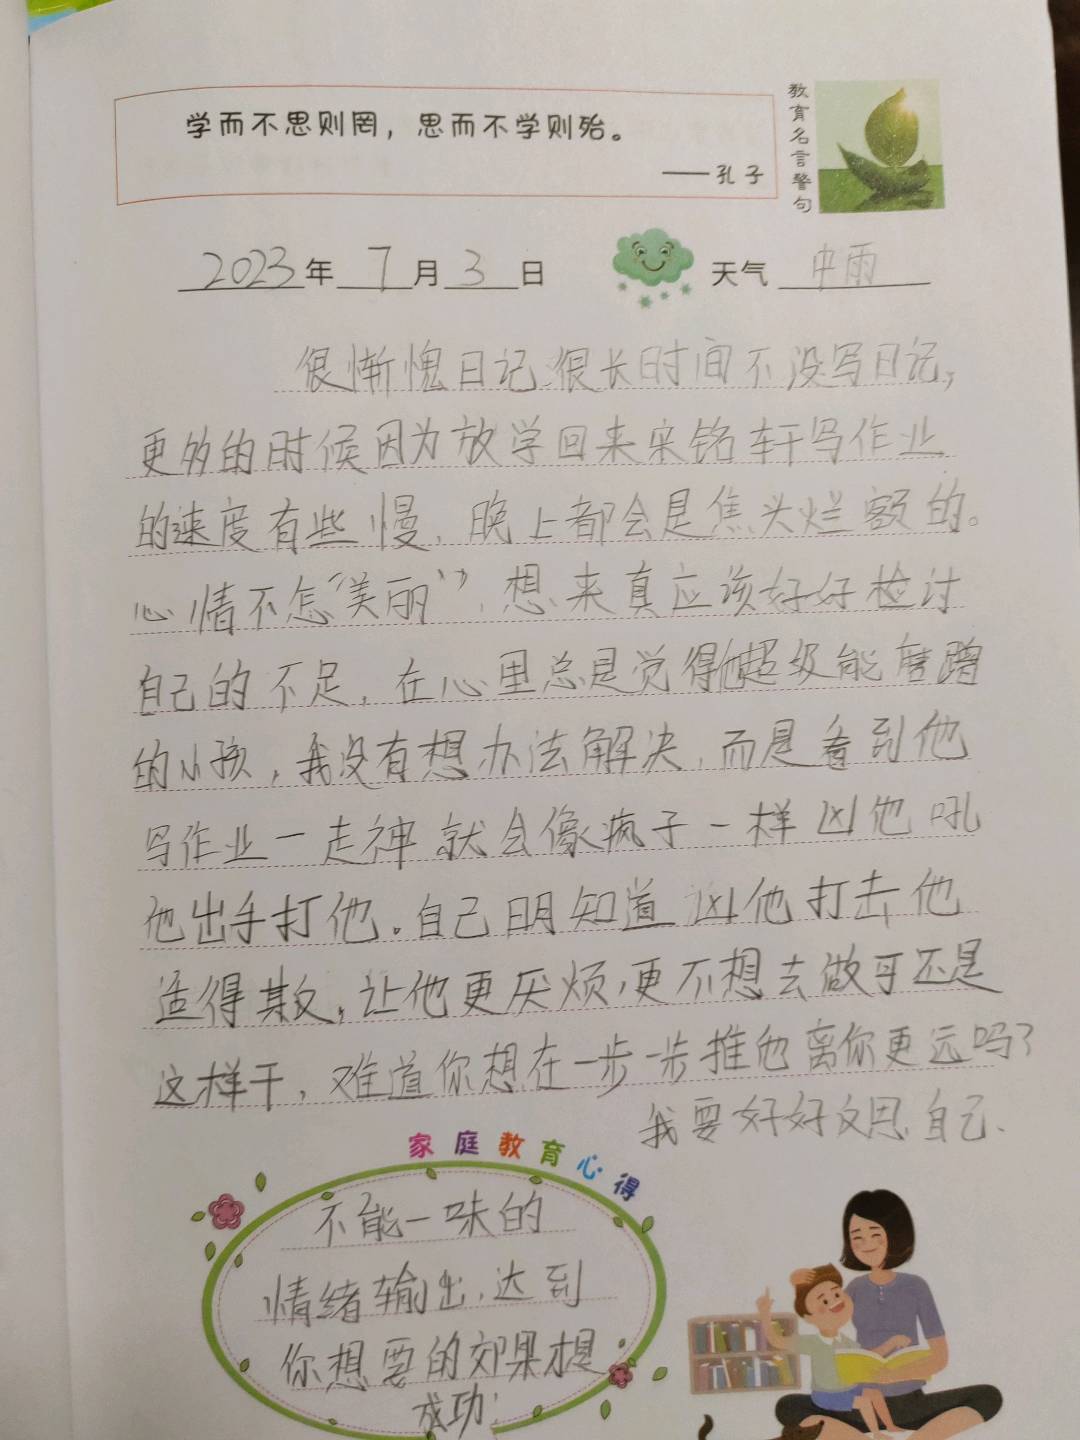 学而不思则罔，思而不学则殆。
——孔子
教育名言警句
2023年7月3日 天气 中雨
很惭愧日记很长时间不没写日记，
更多的时候因为放学回来宋铭轩写作业
的速度有些慢，晚上都会是焦头烂额的。
心情不怎“美丽”，想来真应该好好检讨
自己的不足，在心里总是觉得他超级能磨蹭
的小孩，我没有想办法解决，而是看到他
写作业一走神就会像疯子一样凶他吼
他出手打他。自己明知道凶他打击他
适得其反，让他更厌烦，更不想去做可还是
这样干，难道你想在一步一步推他离你更远吗？
我要好好反思自己.
家庭教育心得
不能一味的
情绪输出，达到
你想要的效果才是
成功！